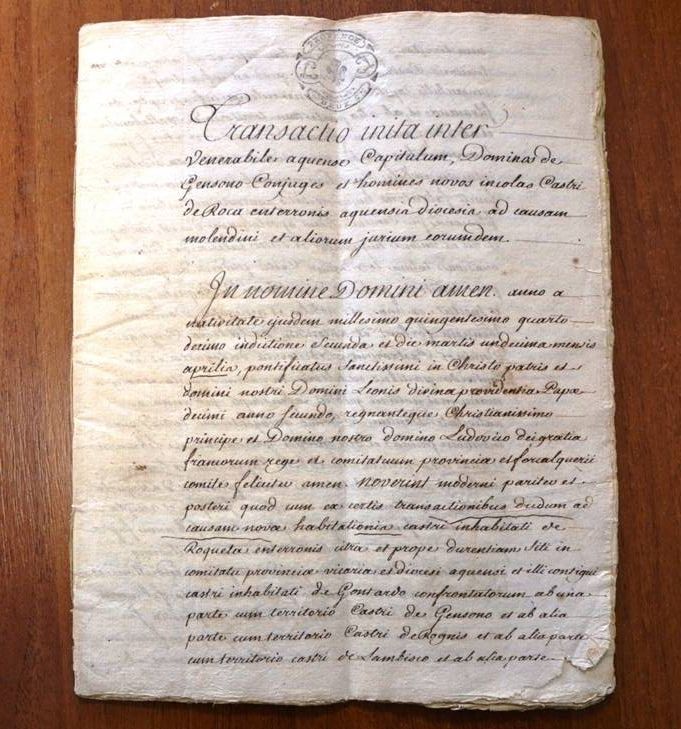 PROVENCE
DEUX
Transactio inita inter
Venerabile aquense Capitulum, Dominos de
Gensono Conjuges et homines novos incolas Castri
de Roca enterronis aquensis diocesis ad causam
molendini et aliorum jurium eorumdem.
In nomine Domini amen. anno a
nativitate ejusdem millesimo quingentesimo quarto
decimo indictione Secunda et die martis undecima mensis
aprilis, pontificatus Sanctissimi in Christo patris et
domini nostri Domini Leonis divina providentia Papæ
decimi anno Secundo, regnanteque Christianissimo
principe et Domino nostro domino Ludovico dei gratia
francorum rege et comitatuum provinciæ et forcalquerii
comite feliciter amen. noverint moderni pariter et
posteri quod cum ex certis transactionibus dudum ad
causam novæ habitationis castri inhabitati de
Roqueta enterronis citra et prope durentiam Siti in
comitatu provinciæ vicaria et diocesi aquensi et illi contigui
castri inhabitati de Gontardo confrontatorum ab una
parte cum territorio Castri de Gensono et ab alia
parte cum territorio Castri de Rognis et ab alia parte
cum territorio castri de Lambisco et ab alia parte